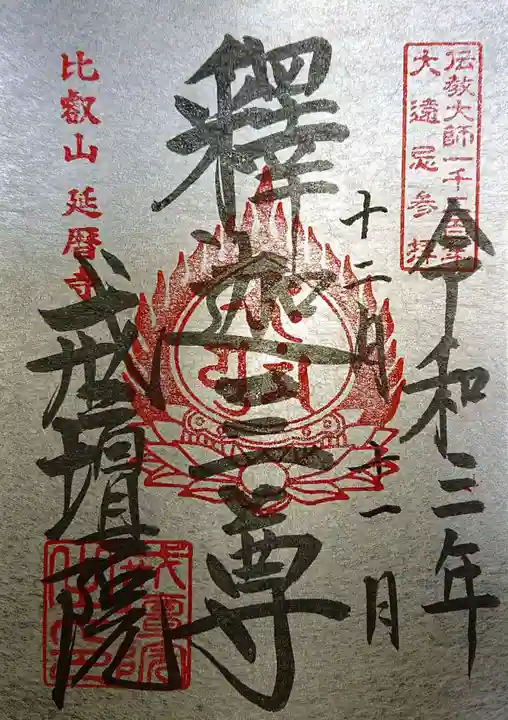 伝教大師一千二百年
大遠忌参拝
令和三年
十二月
釋迦三尊
比叡山 延暦寺
戒壇院